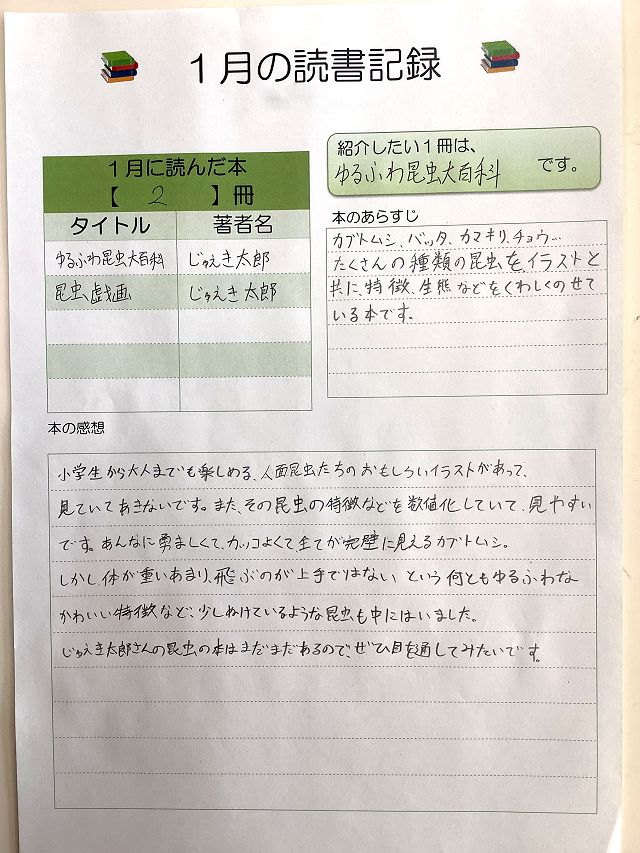 １月の読書記録
１月に読んだ本
【 2 】冊
タイトル 著者名
ゆるふわ昆虫大百科 じゅえき太郎
昆虫戯画 じゅえき太郎
紹介したい１冊は、
ゆるふわ昆虫大百科 です。
本のあらすじ
カブトムシ、バッタ、カマキリ、チョウ…
たくさんの種類の昆虫を、イラストと
共に、特徴、生態などをくわしくのせて
いる本です。
本の感想
小学生から大人までも楽しめる、人面昆虫たちのおもしろいイラストがあって、
見ていてあきないです。また、その昆虫の特徴などを数値化していて、見やすい
です。あんなに勇ましくて、カッコよくて、全てが完璧に見えるカブトムシ。
しかし体が重いあまり、飛ぶのが上手ではない、という何ともゆるふわな
かわいい特徴など、少しぬけているような昆虫も中にはいました。
じゅえき太郎さんの昆虫の本はまだまだあるので、ぜひ目を通してみたいです。